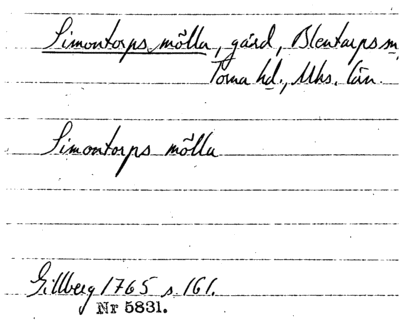 Simontorps mölla, gård, Blentarps sn,
Torna hd., Mhs. län.
Simontorps mölla
Gillberg 1765 s. 161.
Nr 5831.